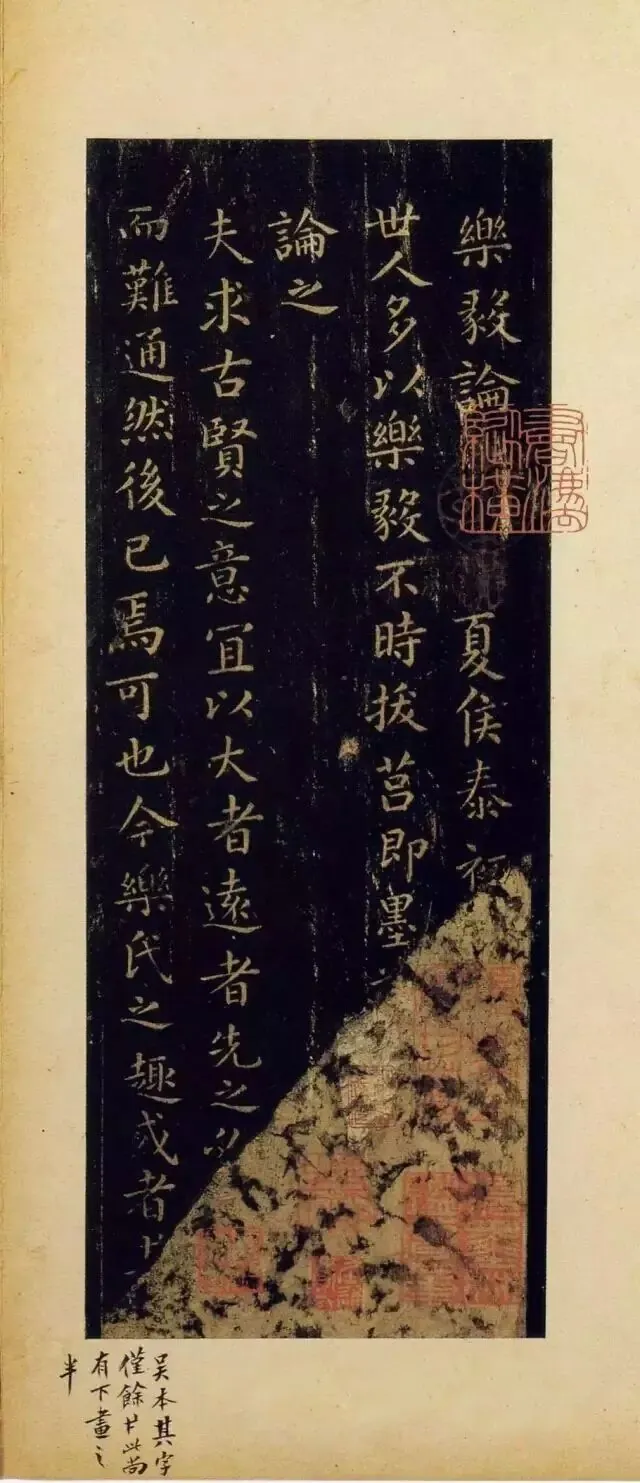 樂毅論 夏侯泰初
世人多以樂毅不時拔莒即墨
論之
夫求古賢之意宜以大者遠者先之必
而難通然後已焉可也今樂氏之趣或者
吴本其字
僅餘此尚
有下畫之
半